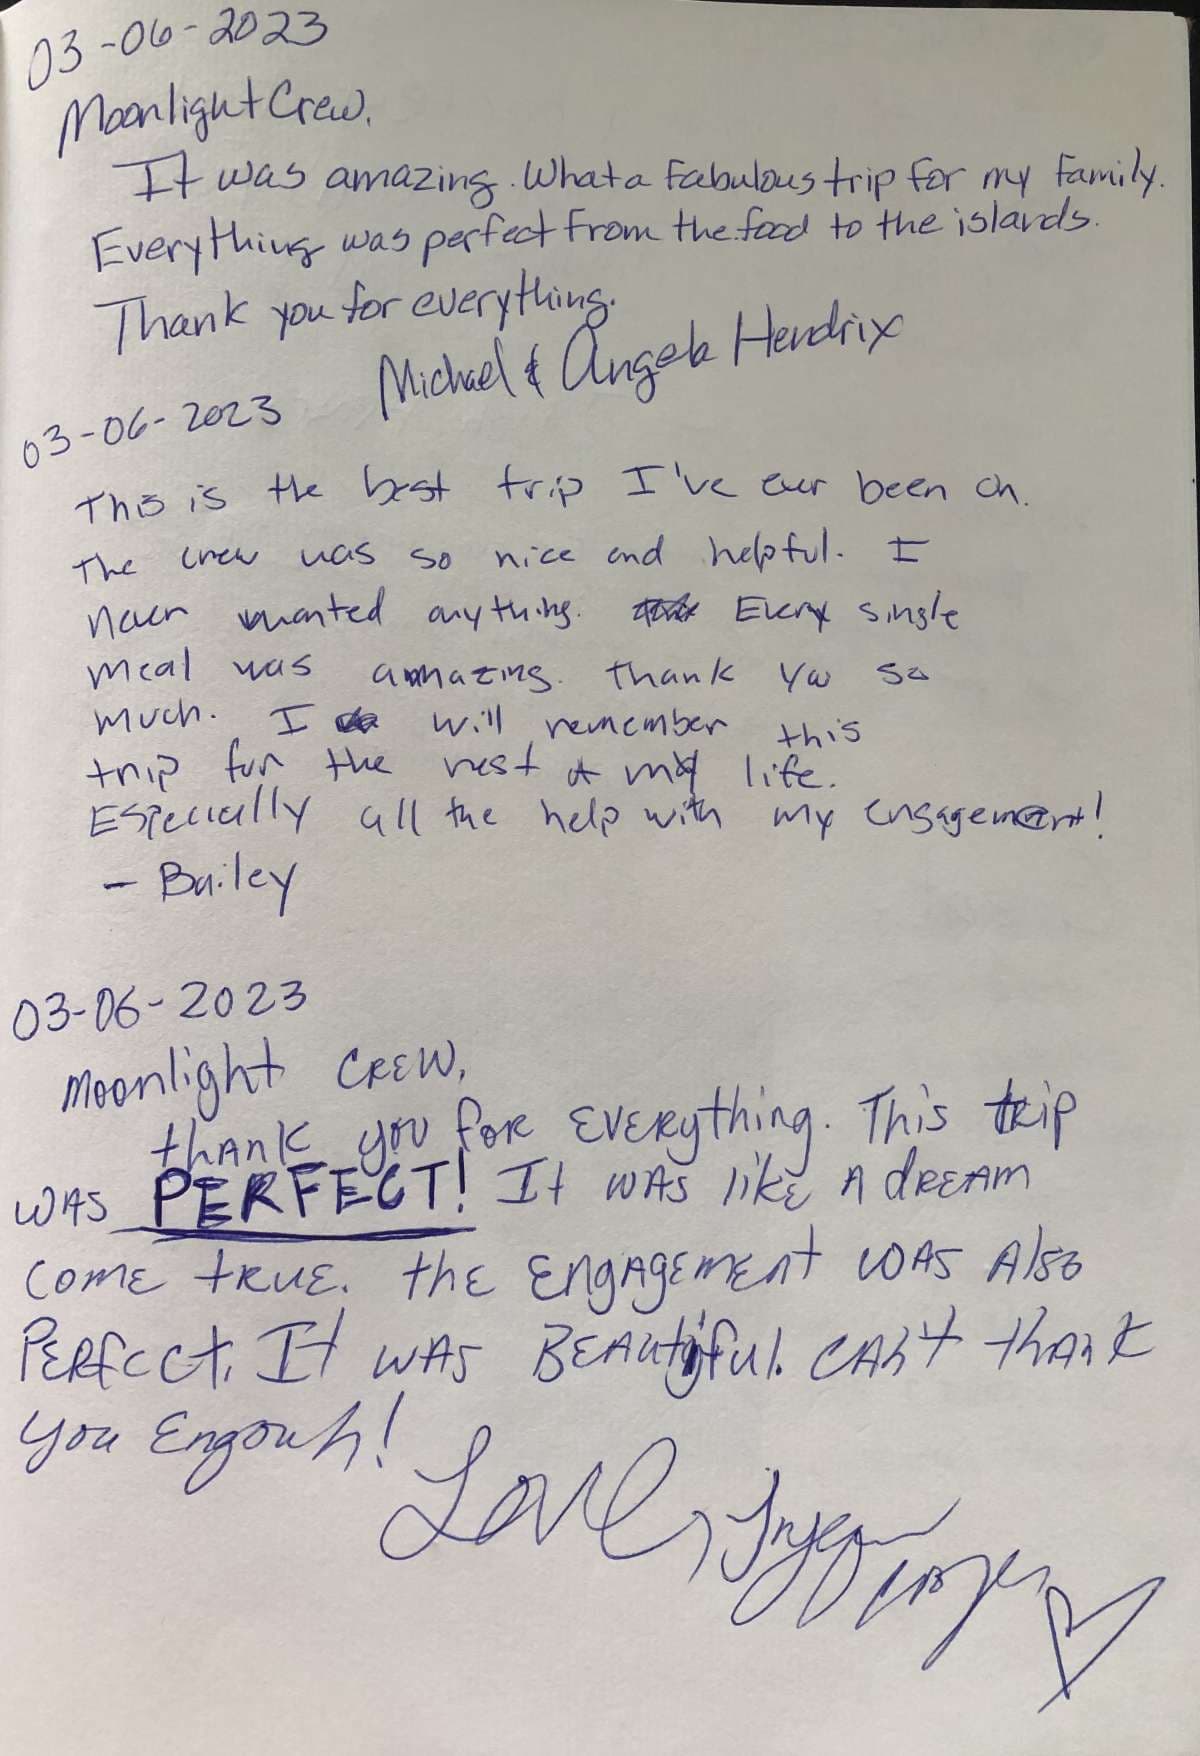 03-06-2023
Moonlight Crew,
It was amazing. What a fabulous trip for my family.
Everything was perfect from the food to the islands.
Thank you for everything.
Michael & Angela Hendrix
03-06-2023
This is the best trip I've ever been on.
The crew was so nice and helpful. I
never wanted anything. Every single
meal was amazing. Thank you so
much. I will remember this
trip for the rest of my life.
Especially all the help with my engagement!
- Bailey
03-06-2023
Moonlight Crew,
Thank you for everything. This trip
was PERFECT! It was like a dream
come true. The engagement was also
perfect. It was beautiful. Can't thank
you engouh!
Love,